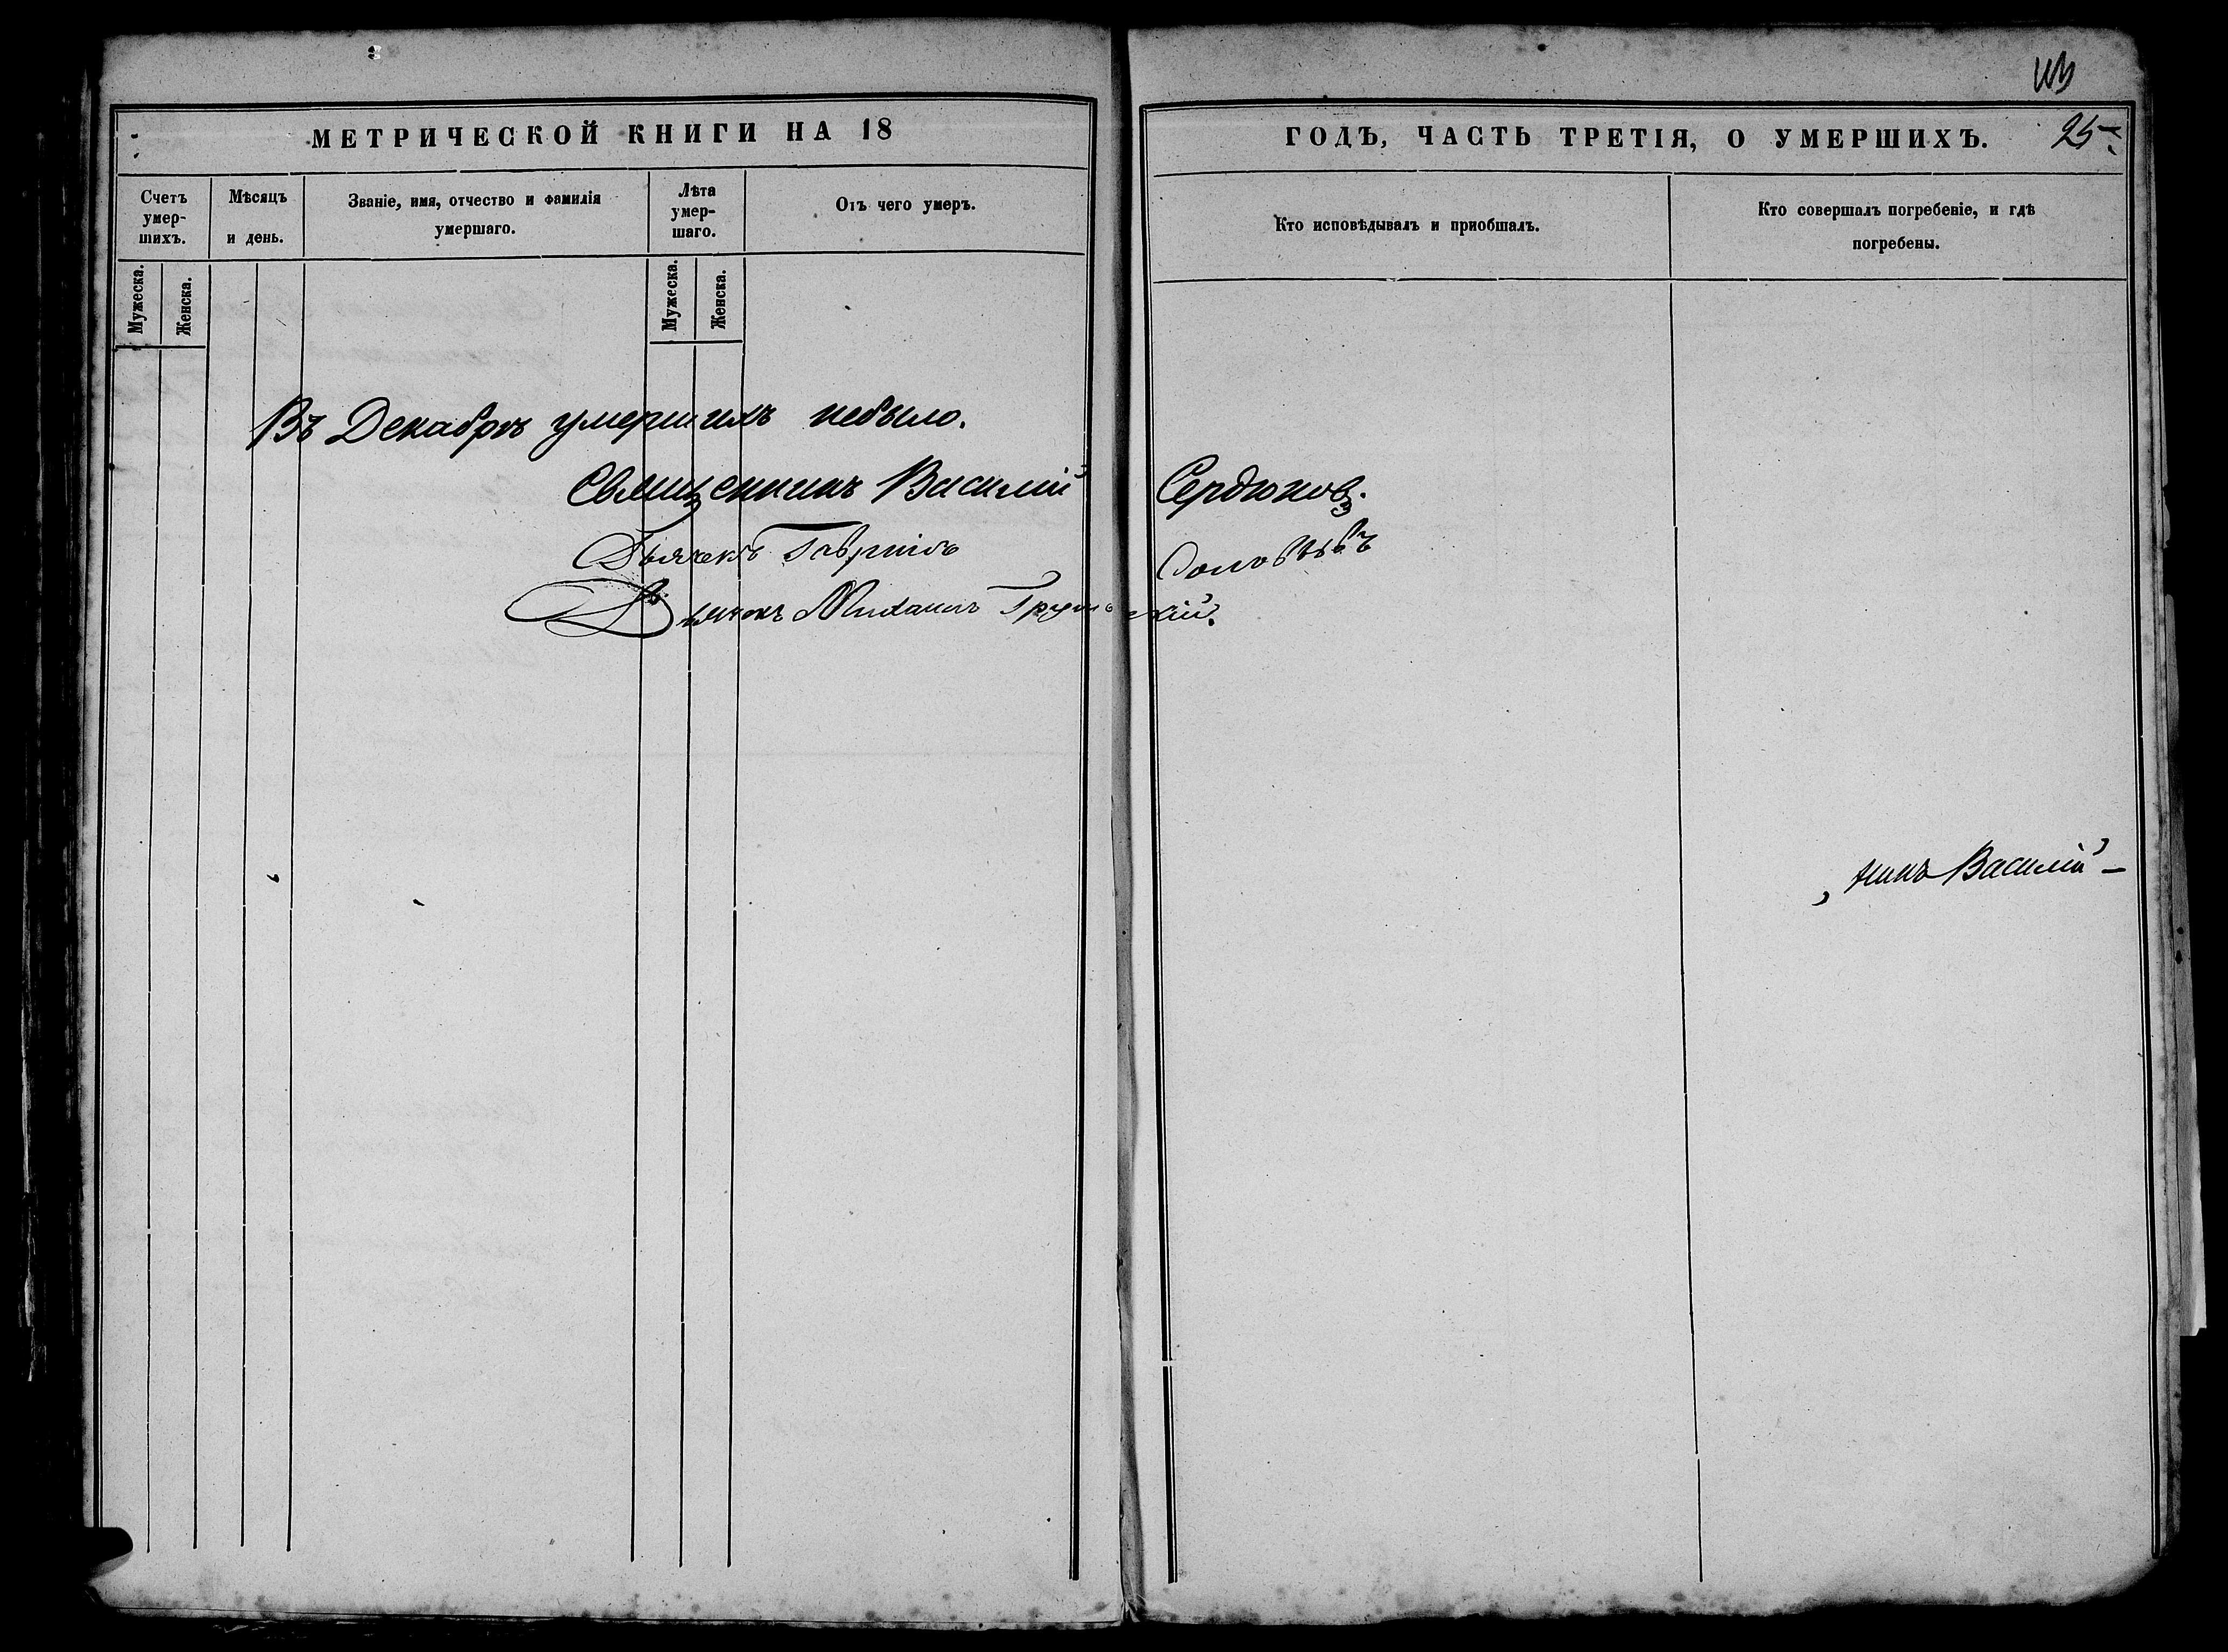 МЕТРИЧЕСКОЙ КНИГИ НА 18 ГОДЪ, ЧАСТЬ ТРЕТІЯ, О УМЕРШИХЪ. 25
Счетъ умер-шихъ.
Мѣсяцъ и день.
Званіе, имя, отчество и фамилія умершаго.
Лѣта умер-шаго.
Отъ чего умеръ.
Кто исповѣдывалъ и пріобщалъ.
Кто совершалъ погребеніе, и гдѣ погребены.
Мужеска.
Женска.
Мужеска.
Женска.
Въ Декабрѣ умершихъ небыло.
Священникъ Василій Сердюковъ.
Дьячекъ Гавріилъ Соловьевъ
Дьячокъ Михаилъ
никъ Василій